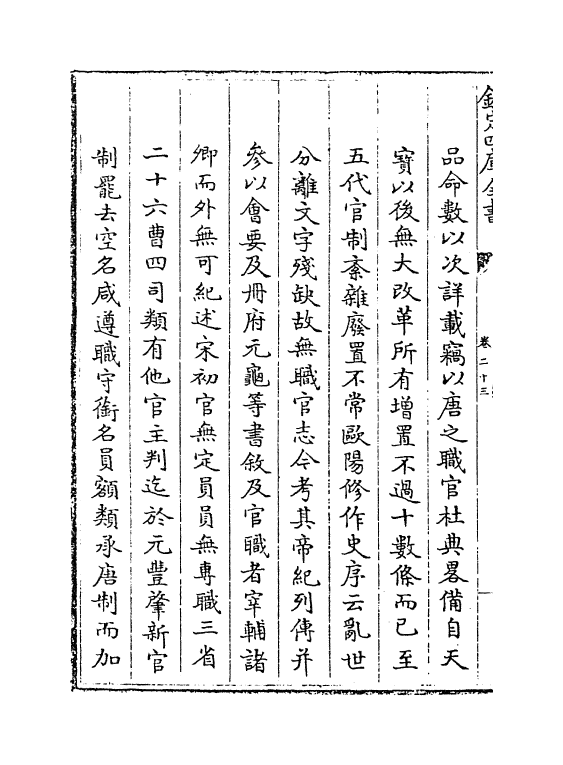 欽定四庫全書
卷二十三
品命數以次詳載竊以唐之職官杜典畧備自天
寶以後無大改革所有增置不過十數條而已至
五代官制紊雜廢置不常歐陽修作史序云亂世
分離文字殘缺故無職官志今考其帝紀列傳并
參以會要及冊府元龜等書敘及官職者宰輔諸
卿而外無可紀述宋初官無定員員無專職三省
二十六曹四司類有他官主判迄於元豐肇新官
制罷去空名咸遵職守銜名員額類承唐制而加